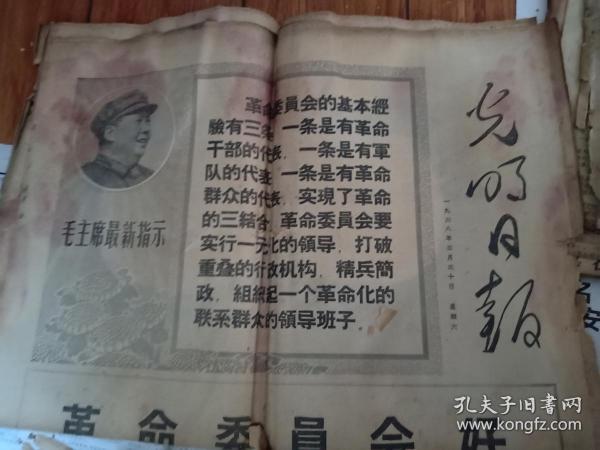 革命委員会的基本經
驗有三条：一条是有革命
干部的代表，一条是有軍
队的代表，一条是有革命
群众的代表，实現了革命
的三結合。革命委員会要
实行一元化的領导，打破
重叠的行政机构，精兵簡
政，組織起一个革命化的
联系群众的領导班子。
毛主席最新指示
光明日報
一九六八年三月三十日 星期六
革命委員会好
孔夫子旧書网
www.kongfz.com